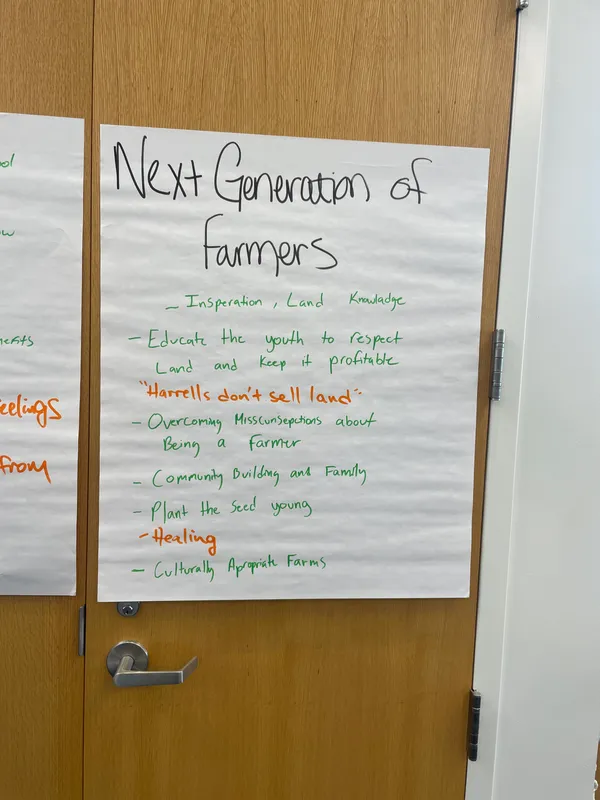 Next Generation of
Farmers
- Insperation, Land Knowladge
- Educate the youth to respect
Land and keep it profitable
"Harrells don't sell land"
- Overcoming Missconseptions about
Being a farmer
- Community Building and Family
- Plant the seed young
- Healing
- Culturally Apropriate Farms
eelings
from